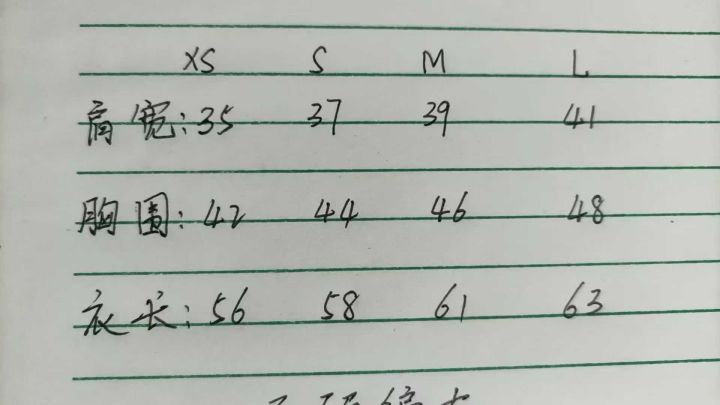 XS S M L
肩宽:35 37 39 41
胸围:42 44 46 48
衣长:56 58 61 63